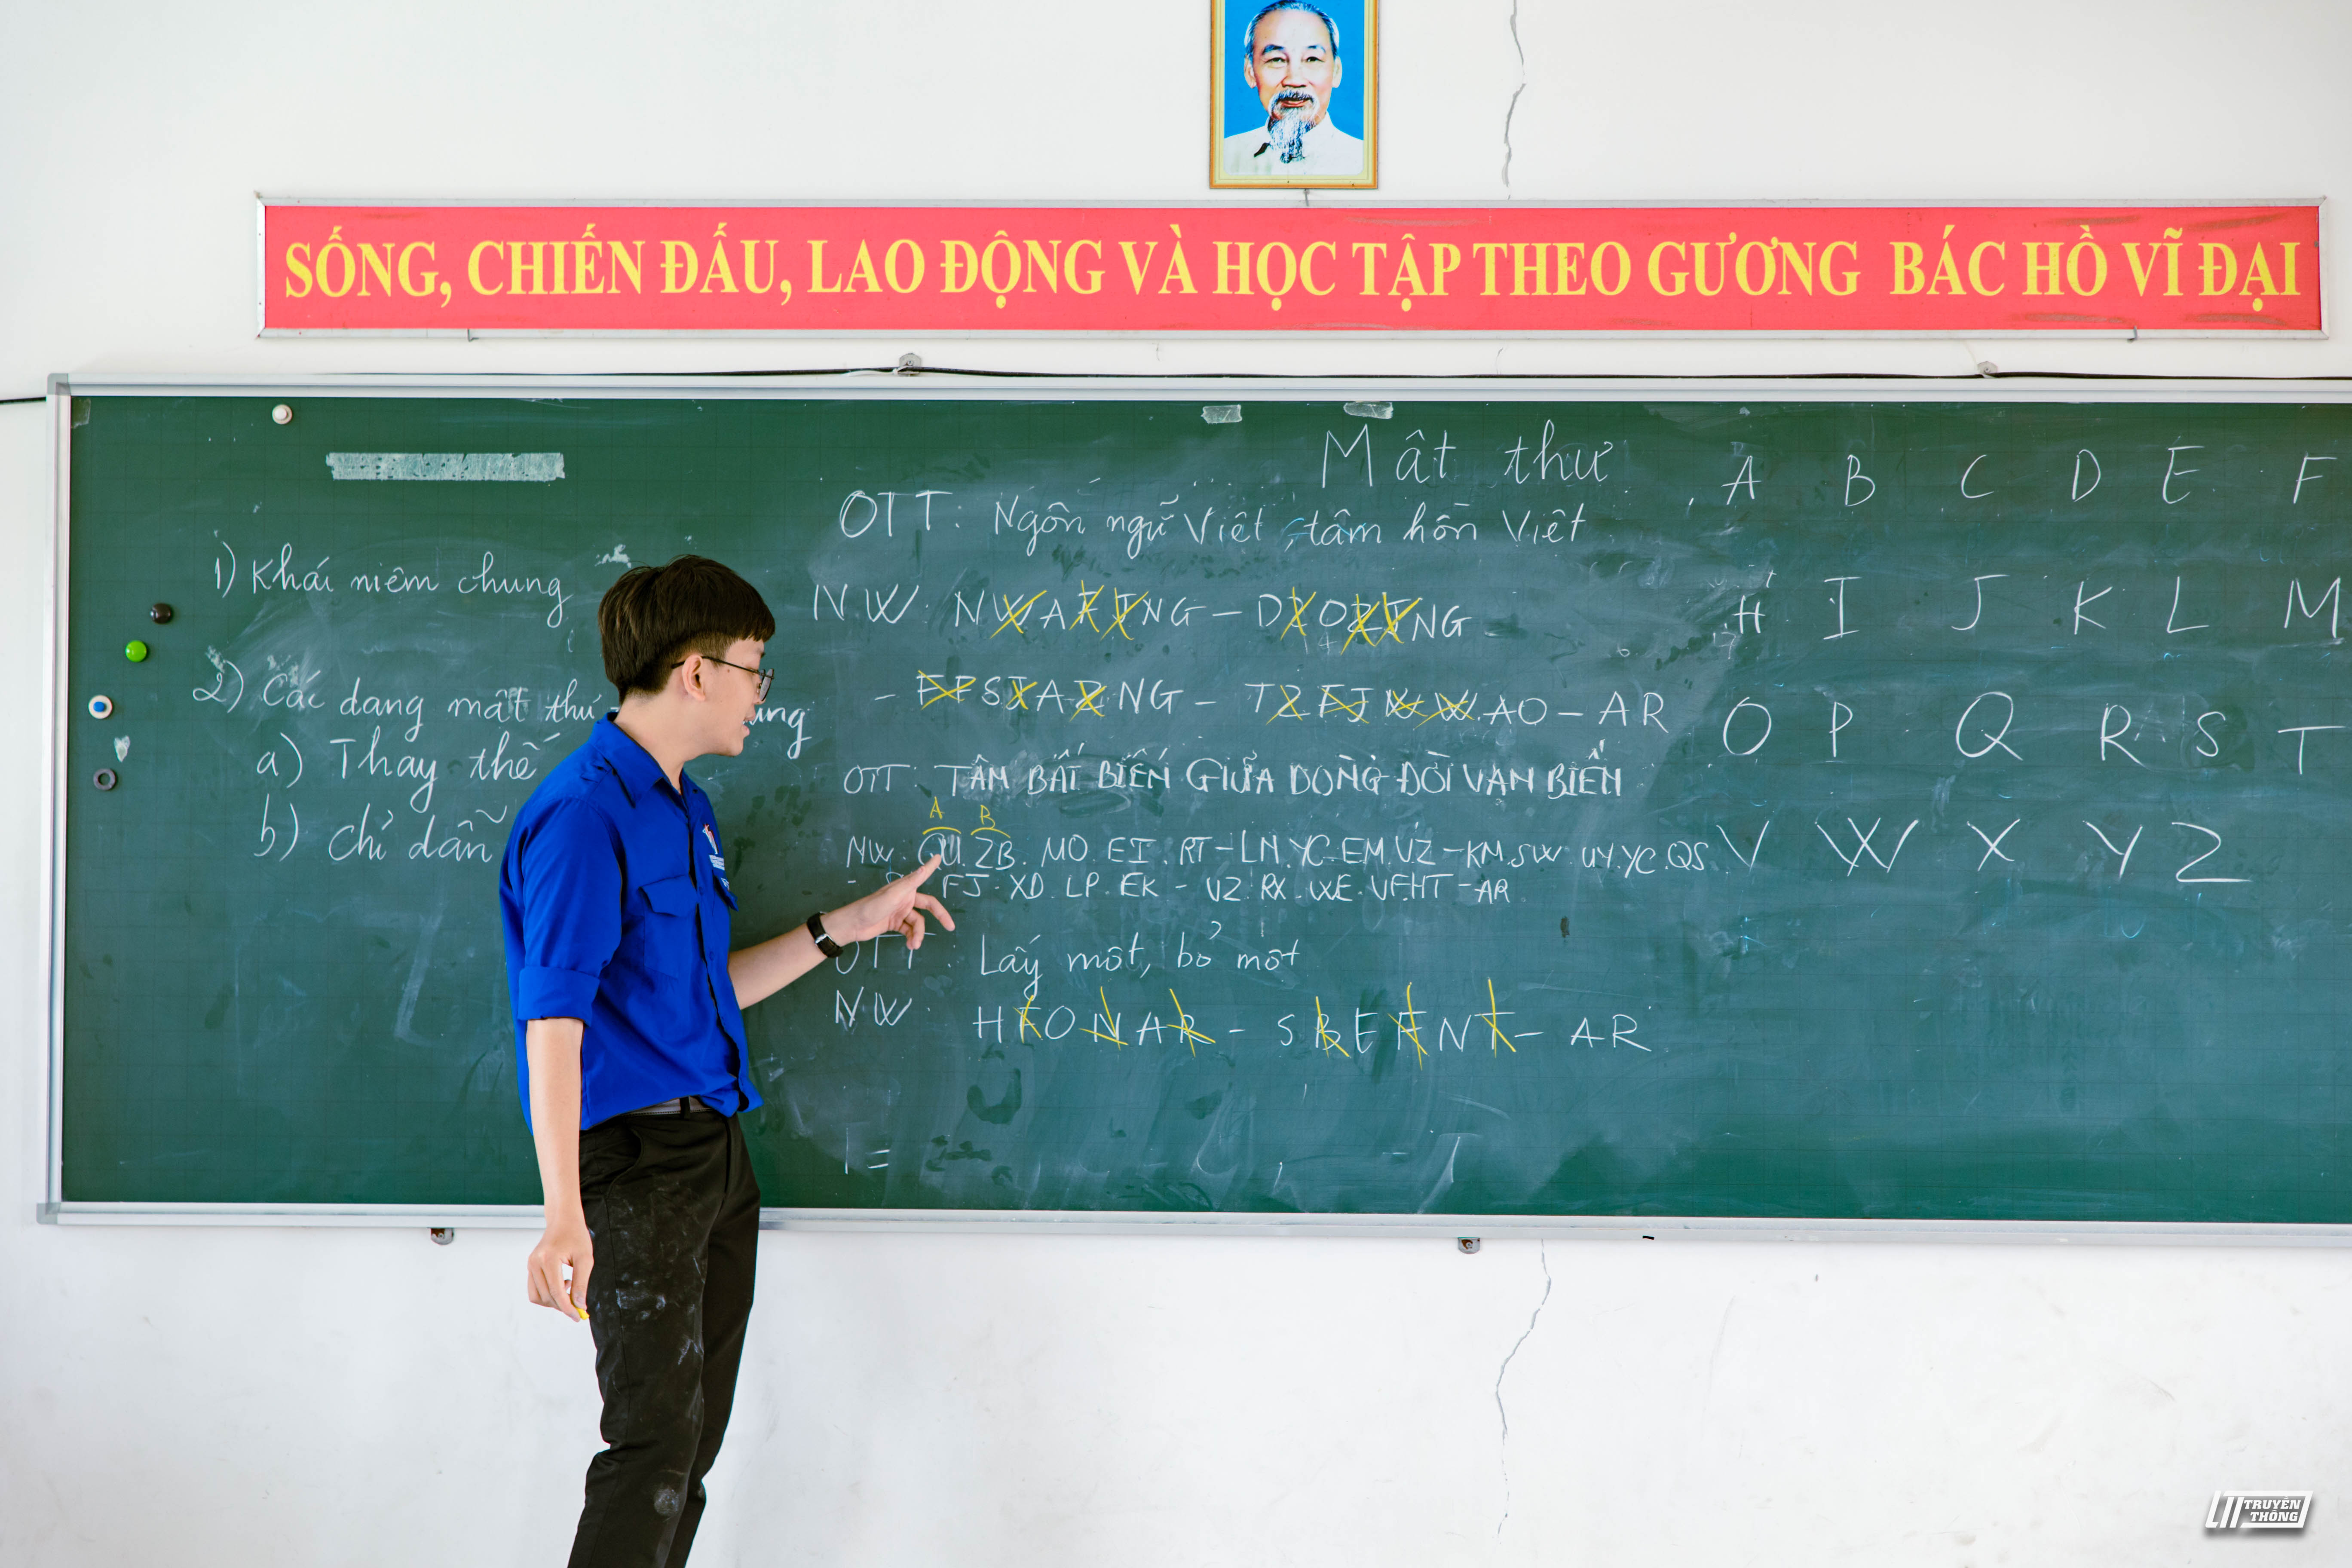 SỐNG, CHIẾN ĐẤU, LAO ĐỘNG VÀ HỌC TẬP THEO GƯƠNG BÁC HỒ VĨ ĐẠI
Mật thư
1) Khái niệm chung
2) Các dạng mật thư
a) Thay thế
b) Chỉ dẫn
OTT: Ngôn ngữ Việt, tâm hồn Việt
NW: NWAFJNG - DZOZJNG
- FFSJAZNG - TZFJWWAO - AR
OTT: TÂM BẤT BIẾN GIỮA DÒNG ĐỜI VẠN BIẾN
A B
NW: QU. ZB. MO. EI. RT - LN. YC. EM. VZ - KM. SW. UY. YC. QS
FJ. XD. LP. EK - VZ. RX. WE. VF. HT - AR
OTT: Lấy một, bỏ một
NW: HFONAR - SBEFNT - AR
1 =
A B C D E F
H I J K L M
O P Q R S T
V W X Y Z
TRUYỀN THÔNG